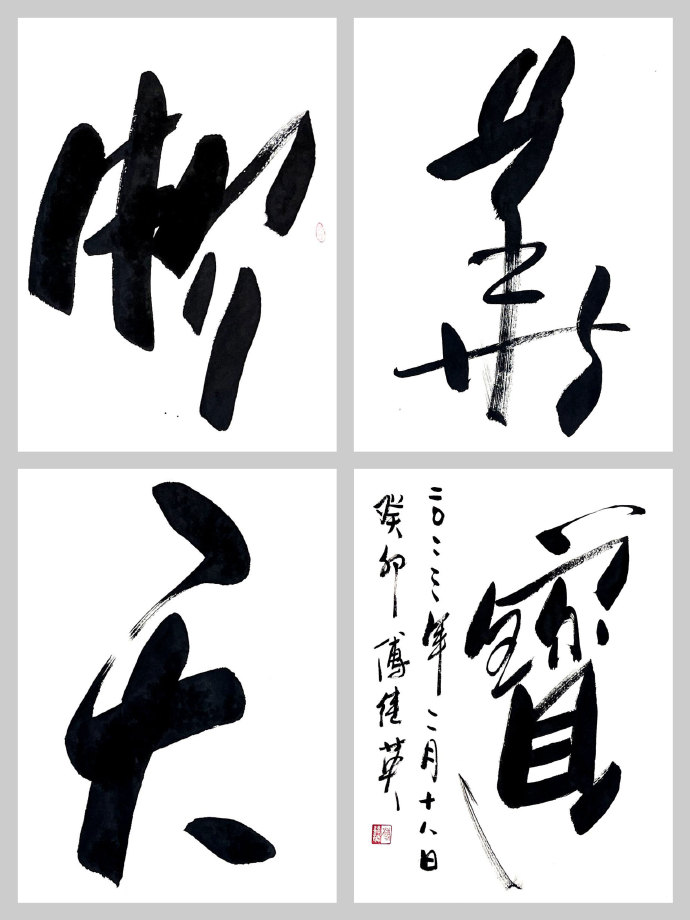 物
華
天
寶
二〇二三年二月十八日
癸卯 傅佳英